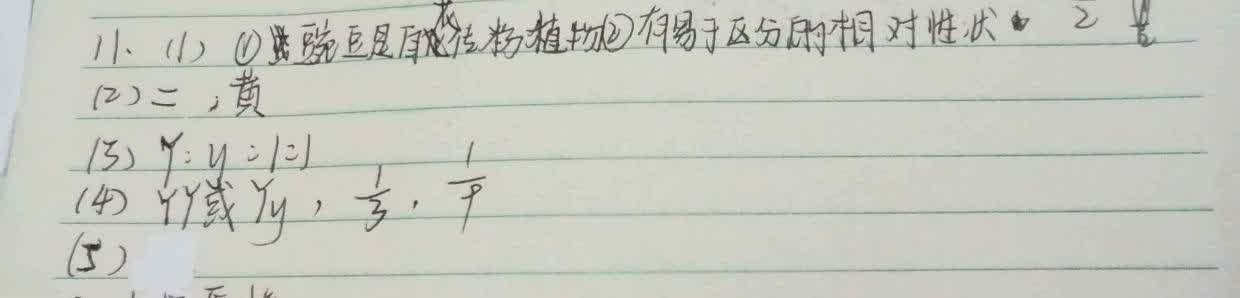 11. (1) ①豌豆是自花传粉植物②有易于区分的相对性状 2
(2) 二 , 黄
(3) Y:y=1:1
(4) YY或Yy , 1/3 , 1/9
(5)